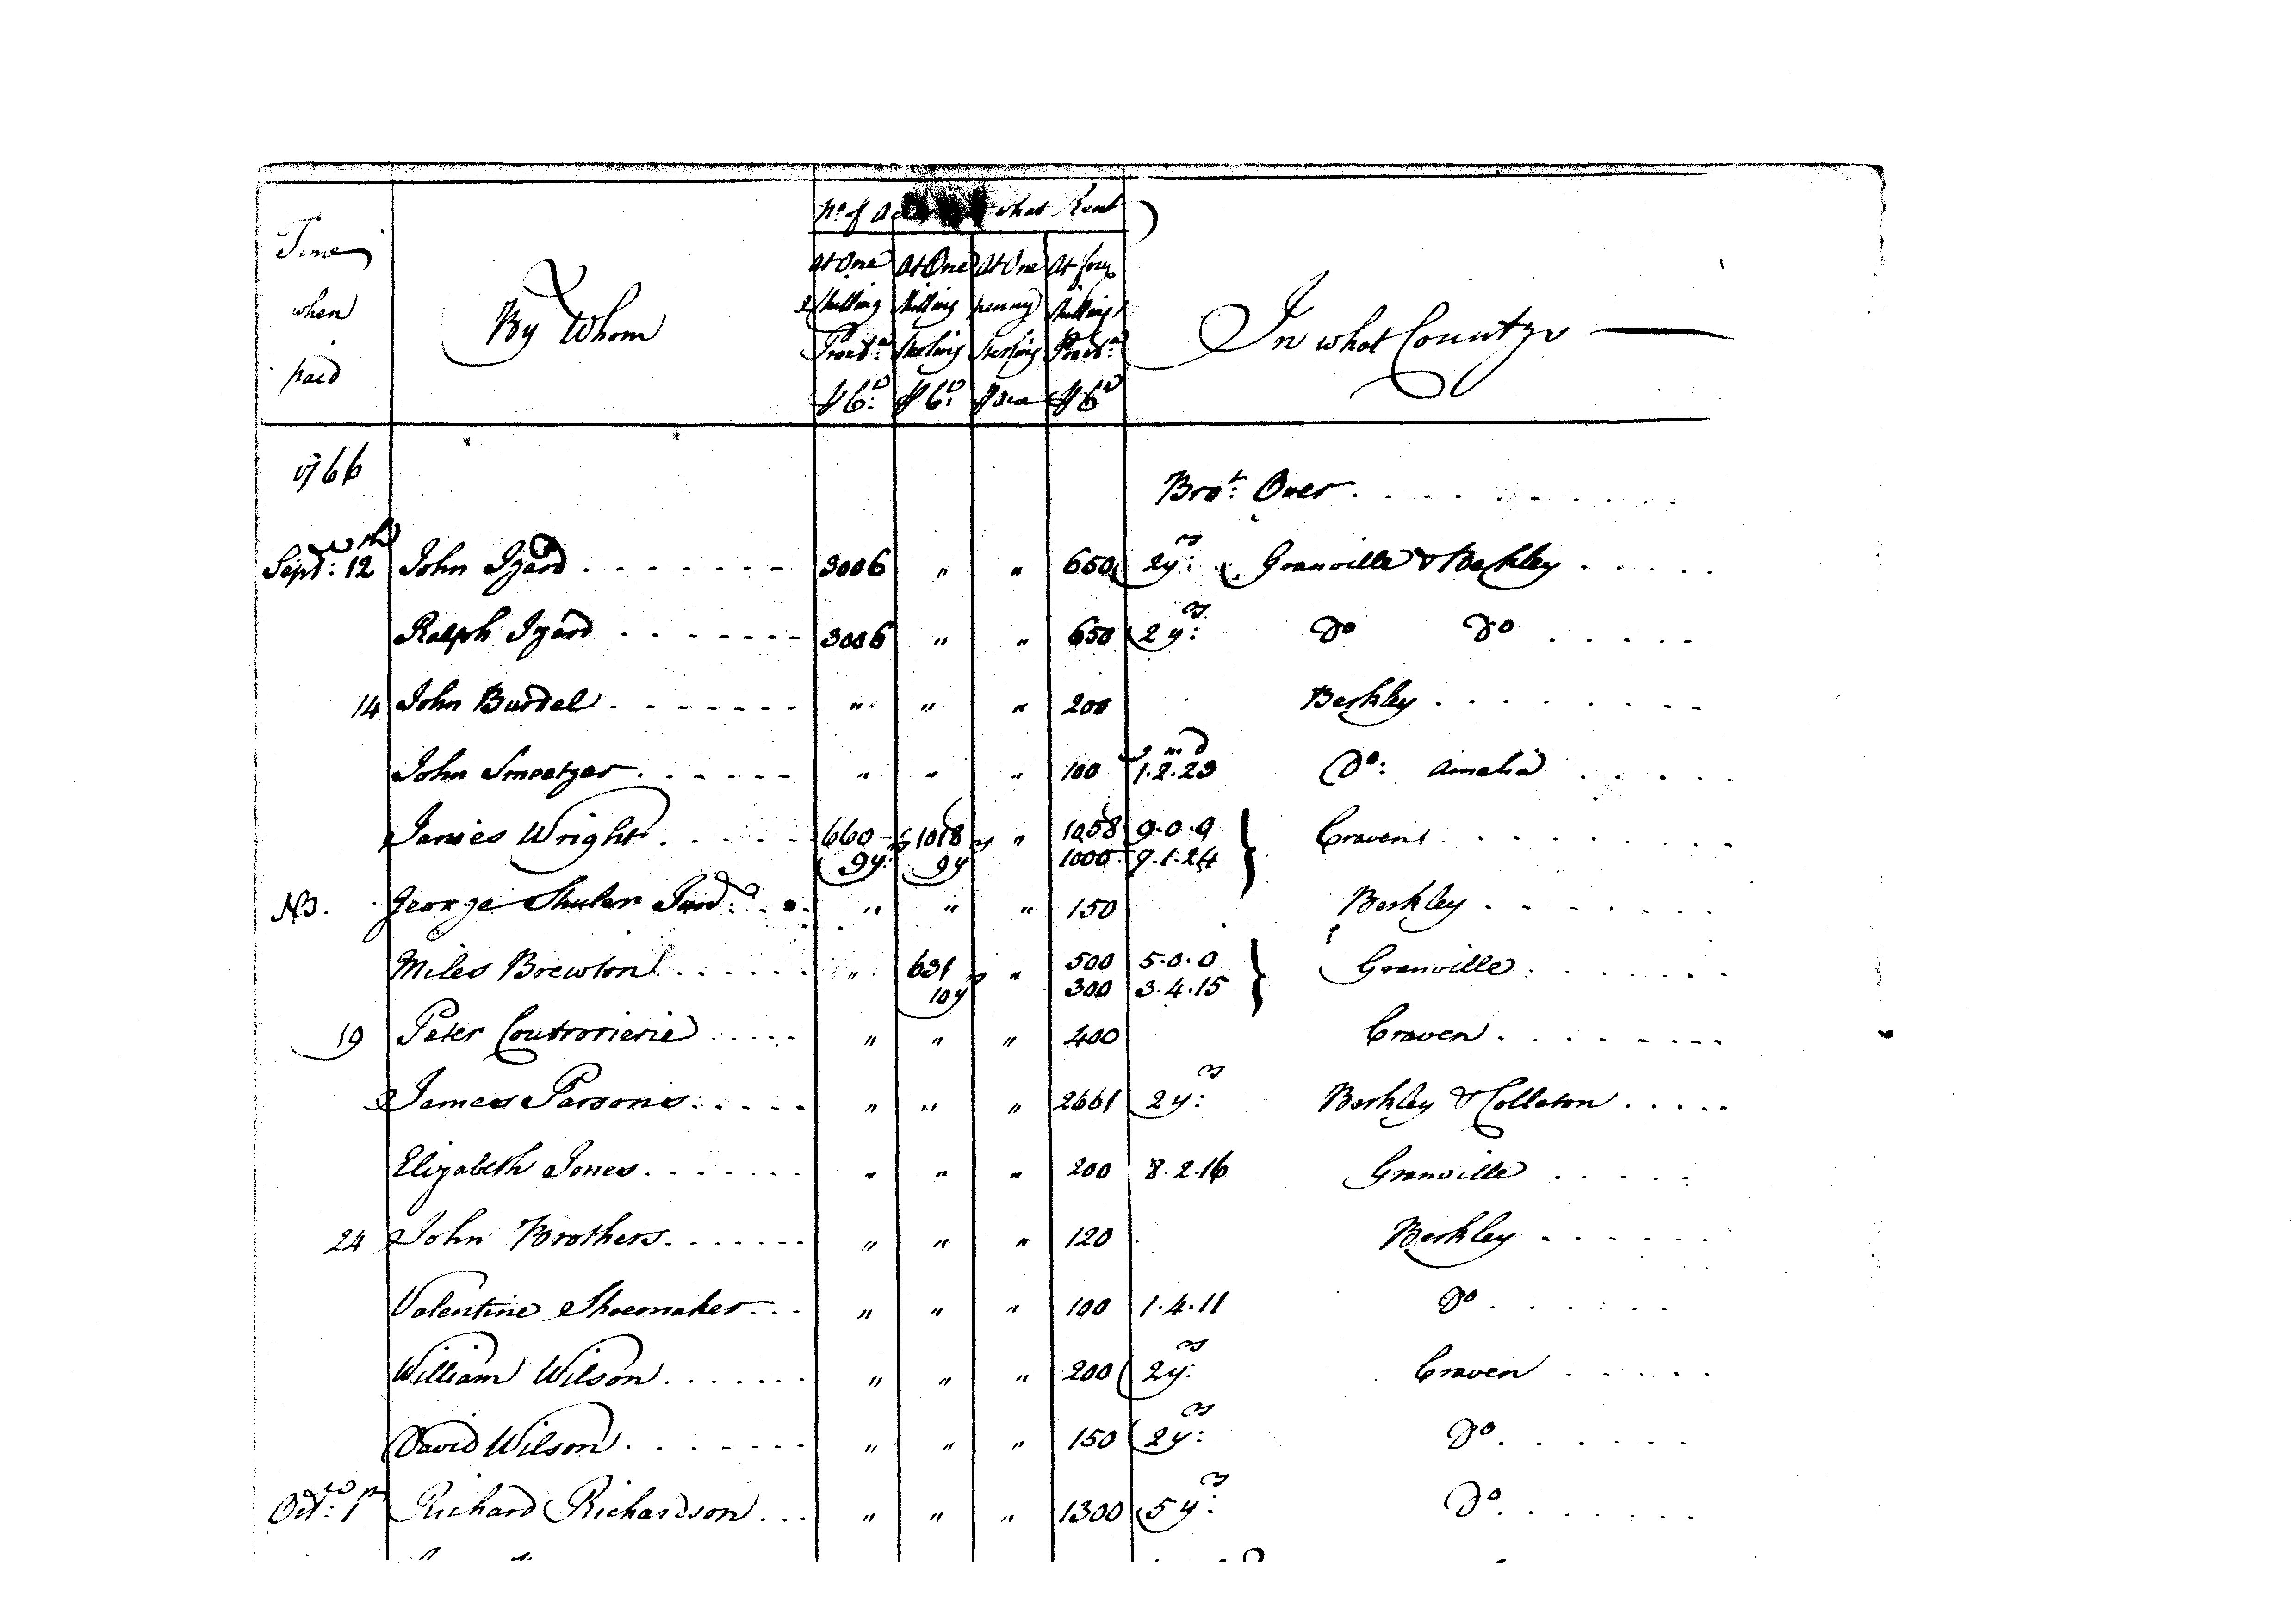 Time when paid | By Whom | No. of Acres what Rent | In what County
At One Shilling Procl.n ⅌ C.t | At One Shilling Sterling ⅌ C.t | At One penny Sterling ⅌ Acre | At four Shillings Procl.n ⅌ C.t
1766 Bro.t Over
Sept.r 12th John Izard 3006 " " 650 2y.rs Granville & Berkley
Ralph Izard 3006 " " 650 2y.rs Do Do
14 John Burdel " " " 200 Berkley
John Smoetzer " " " 100 1.2.23 Do: Amelia
James Wright 660 1018 " 1058 9.0.9 } Craven
9y. 9y 1000 9.1.24
NB. George Shuler Jun.r " " " 150 Berkley
Miles Brewton " 631 " 500 5.0.0 } Granville
10y 300 3.4.15
19 Peter " " " 400 Craven
James Parsons " " " 2661 2y.rs Berkley & Colleton
Elizabeth Jones " " " 200 8.2.16 Granville
24 John Brothers " " " 120 Berkley
Valentine Shoemaker " " " 100 1.4.11 Do
William Wilson " " " 200 2y.rs Craven
David Wilson " " " 150 2y.rs Do
Oct.r 1st Richard Richardson " " " 1300 5y.rs Do